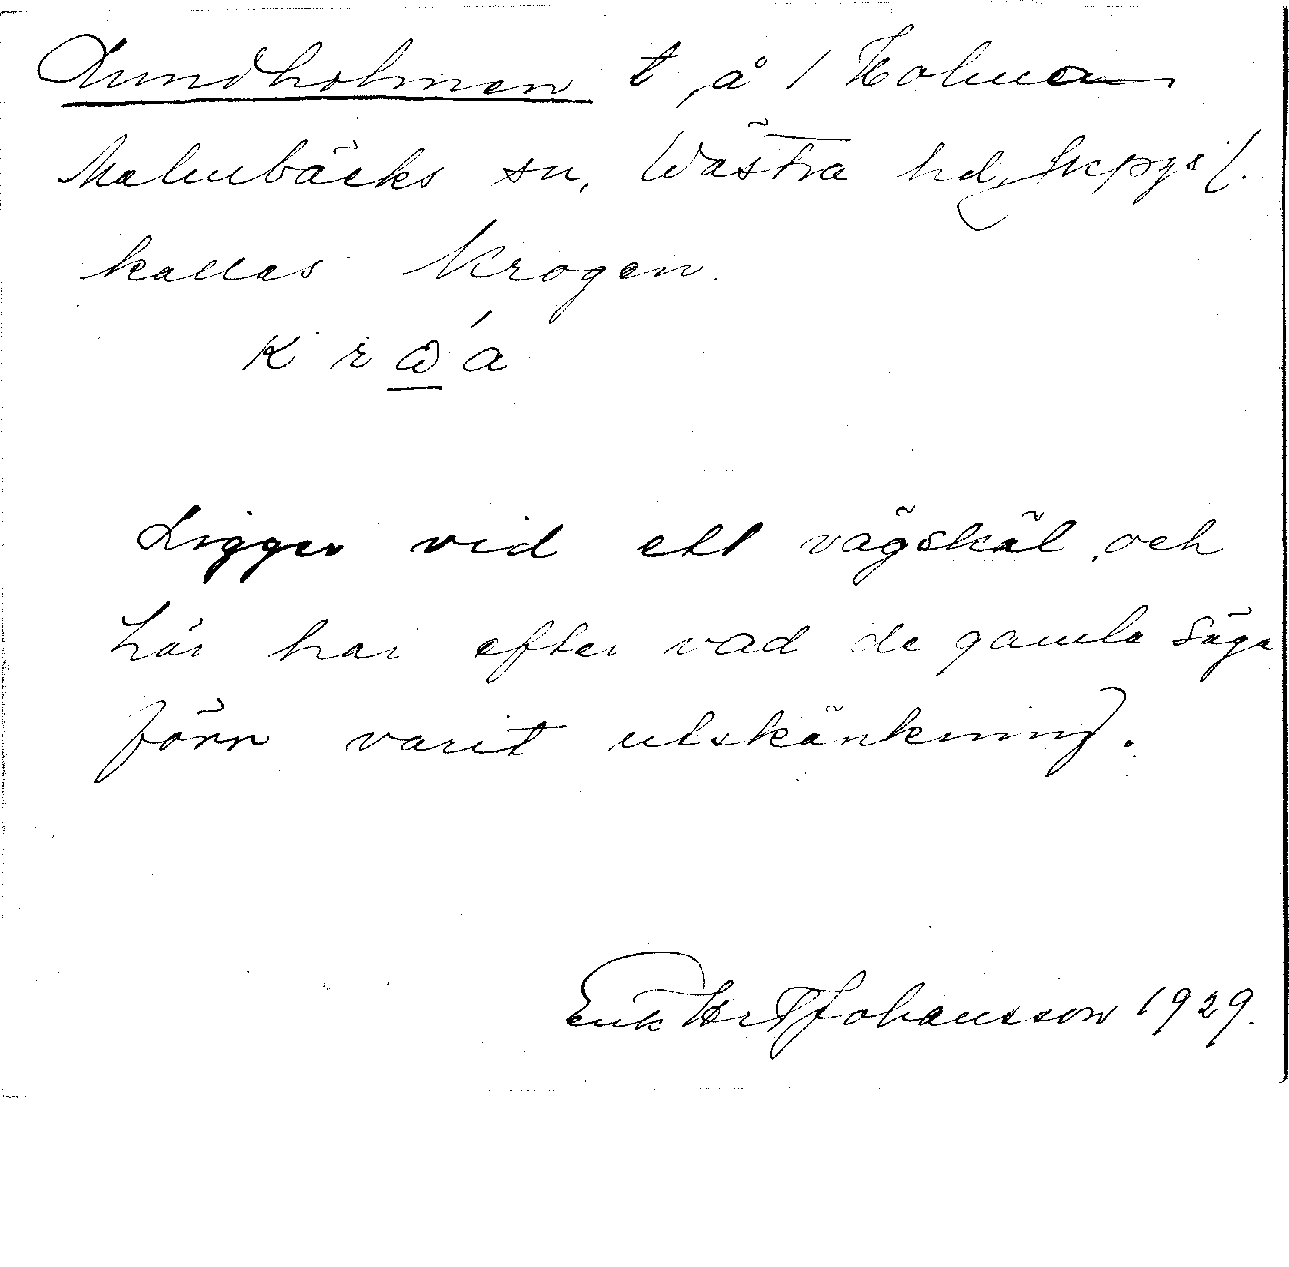 Lundholmen t å 1 Holma
Malmbäcks sn, Västra hd,
kallas Krogen.
Ligger vid ett vägskäl och
här har efter vad de gamla säga
förr varit utskänkning.
Johansson 1929.